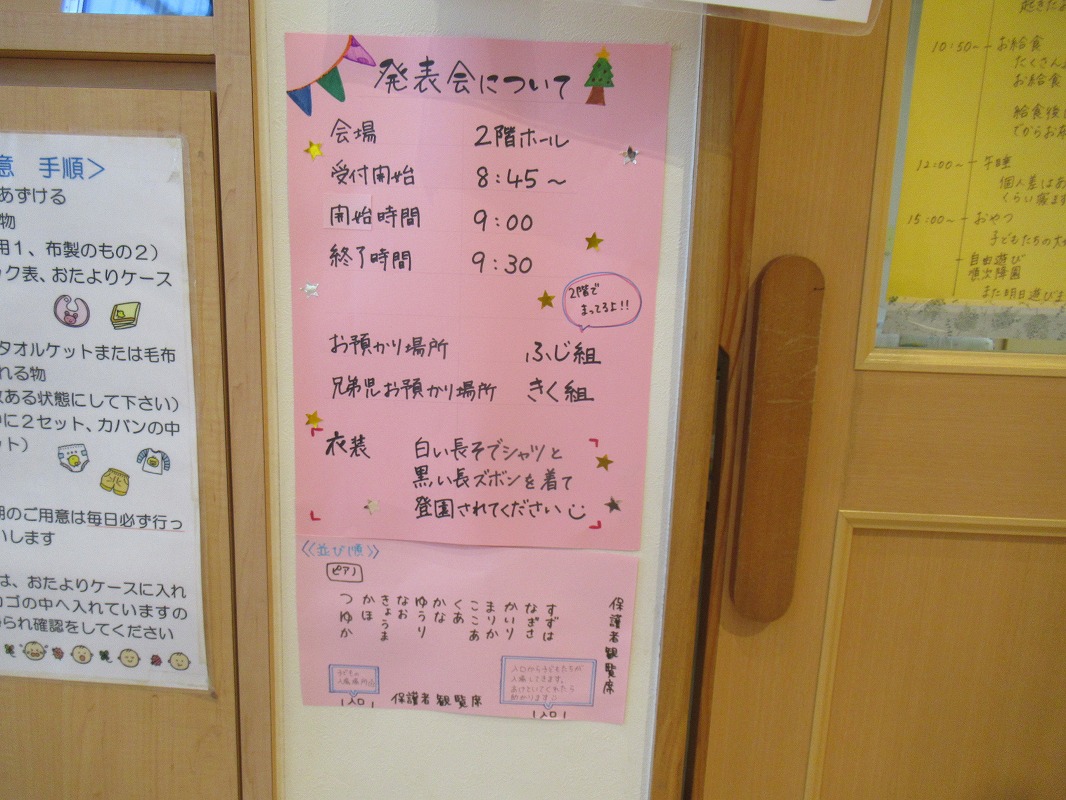 発表会について
会場 2階ホール
受付開始 8:45~
開始時間 9:00
終了時間 9:30
2階で
まってるよ!!
お預かり場所 ふじ組
兄弟児お預かり場所 きく組
衣装 白い長そでシャツと
黒い長ズボンを着て
登園されてください
《並び順》
ピアノ
保護者観覧席
すずは
なぎさ
かいり
まりか
ここあ
くあ
かな
ゆうり
なお
きょうま
かほ
つゆか
子どもの
入口から子どもたちが
入場してきます。
あけていてくれたら
助かります
入口
保護者観覧席
入口
意 手順>
あずける
物
用1、布製のもの2)
ック表、おたよりケース
タオルケットまたは毛布
れる物
ある状態にして下さい)
に2セット、カバンの中
ット)
のご用意は毎日必ず行っ
いします
は、おたよりケースに入れ
カゴの中へ入れていますの
られ確認をしてください
起きたお
10:50~ お給食
たくさん
お給食
給食後
でからお
12:00~ 午睡
個人差はあ
くらい寝ま
15:00~ おやつ
子どもたちの大
自由遊び
順次降園
また明日遊びま